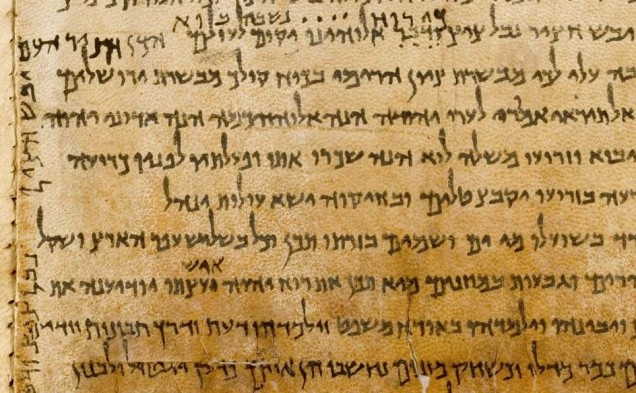 כי רוח .... נשבה בוא
הכן חציר העם
יבש חציר נבל ציץ ודבר אלוהינו יקום לעולם
עלי לכי מבשרת ציון הרימי בכוח קולך מבשרת ירושלים
אל תיראי אמרי לערי יהודה הנה אלוהיכמה הנה אדוני יהוה
יבוא וזרועו משלה לוא הנה שכרו אתו ופעלתיו לפניו כרועה
ירעה בזרועו יקבצ טלים ובחיקוה ישא עולות ינהל
בשועלו מי ים ושמים בזרתו תכן וכל בשליש עפר הארץ ושקל
איש
הרים וגבעות במוזנים מיא תכן את רוח יהוה ועצתו יודיענה את
ויבינהו וילמדהו באורח משפט וילמדהו דעת ודרך תבונות
כמר מדלי וכשחק מוזנים נחשבו הן איים כדק יטול ולבנן
יבש חציר נבל ציץ ודבר